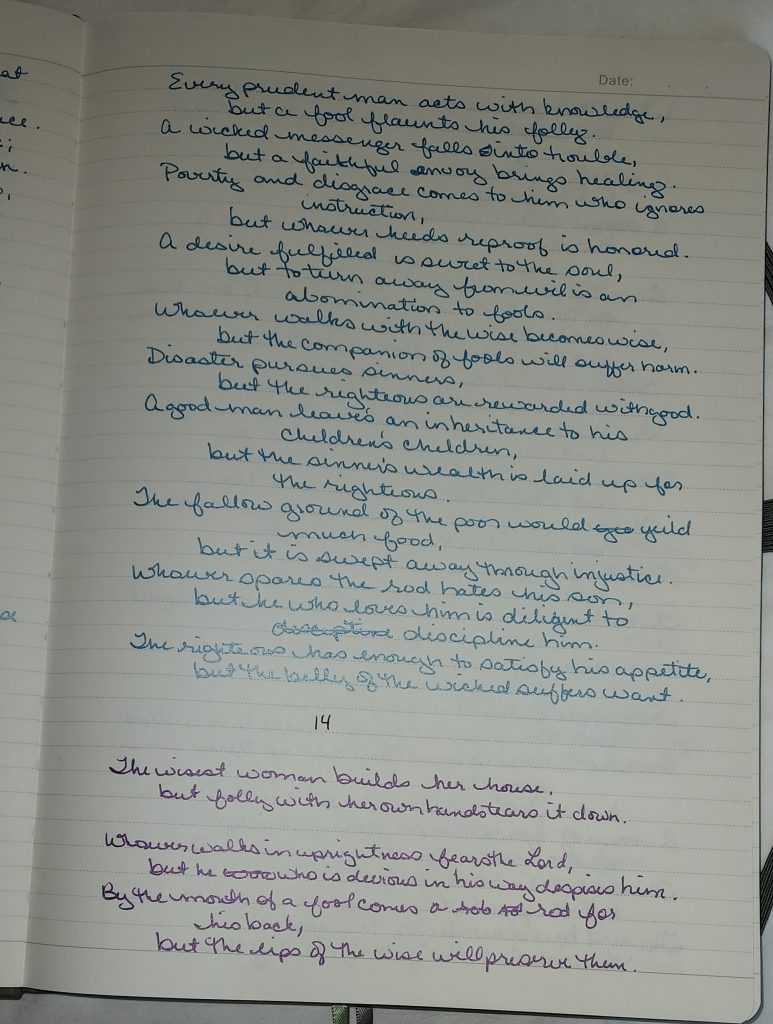 at
Date:
Every prudent man acts with knowledge,
but a fool flaunts his folly.
A wicked messenger falls into trouble,
but a faithful envoy brings healing.
Poverty and disgrace comes to him who ignores
instruction,
but whoever heeds reproof is honored.
A desire fulfilled is sweet to the soul,
but to turn away from evil is an
abomination to fools.
Whoever walks with the wise becomes wise,
but the companion of fools will suffer harm.
Disaster pursues sinners,
but the righteous are rewarded with good.
A good man leaves an inheritance to his
children's children,
but the sinner's wealth is laid up for
the righteous.
The fallow ground of the poor would yeild
much food,
but it is swept away through injustice.
Whoever spares the rod hates his son,
but he who loves him is diligent to
discipline him.
The righteous has enough to satisfy his appetite,
but the belly of the wicked suffers want.
14
The wisest woman builds her house,
but folly with her own hands tears it down.
Whoever walks in uprightness fears the Lord,
but he who is devious in his way despises him.
By the mouth of a fool comes a rod for
his back,
but the lips of the wise will preserve them.